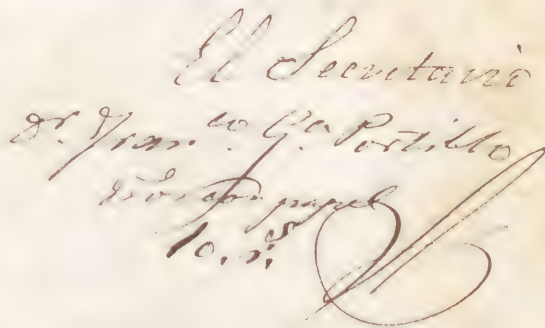 El Secretario
Dr. Fran.co Ga. Portillo
papel
10. rs.